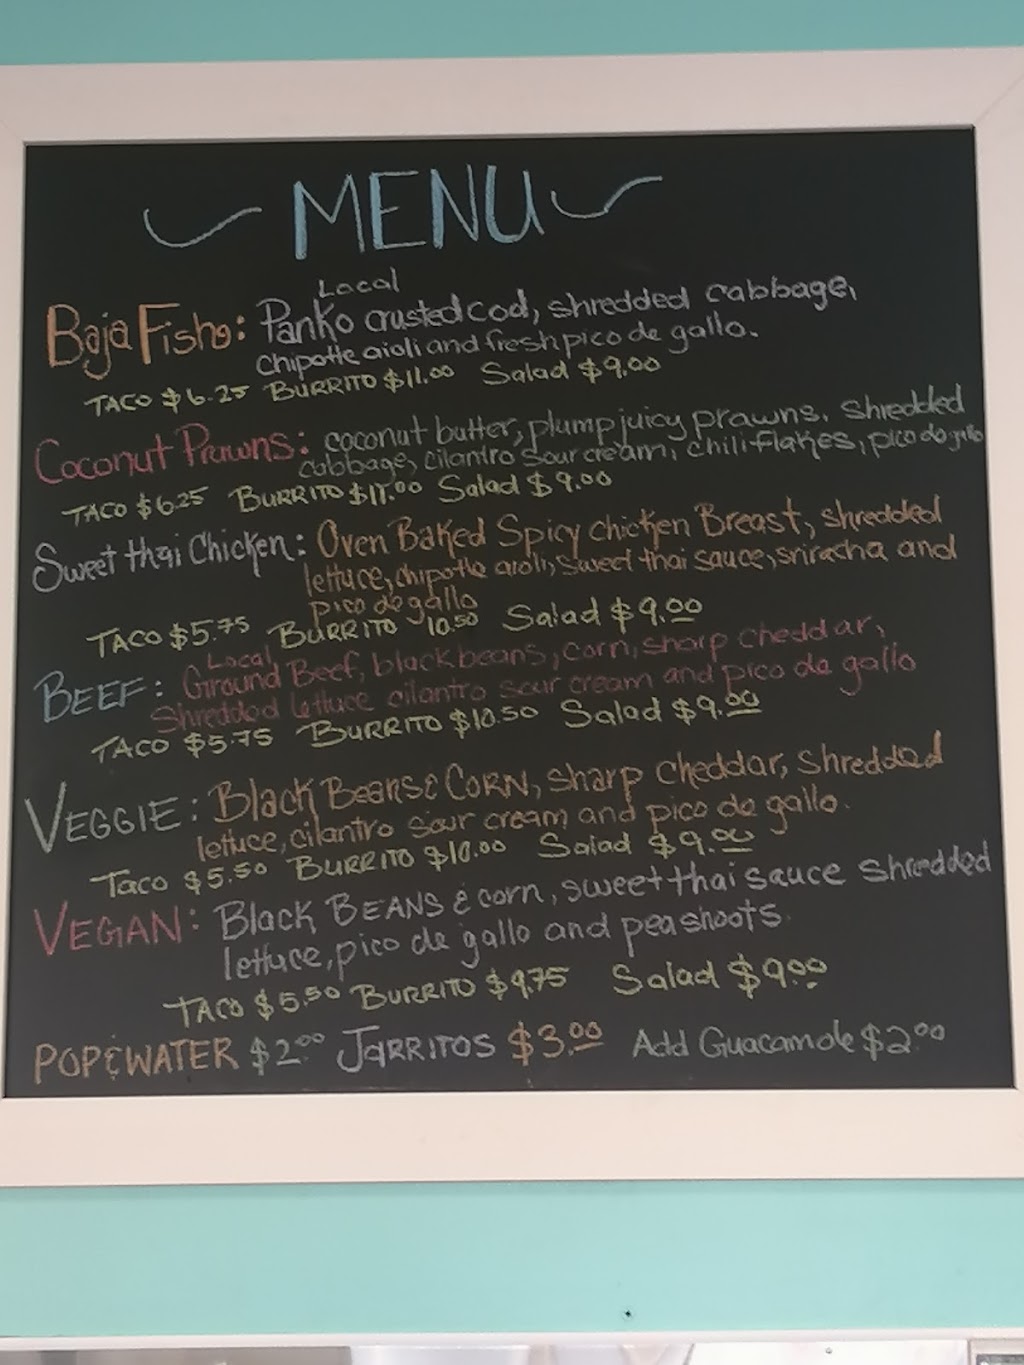 MENU
Local
Baja Fish: Panko crusted cod, shredded cabbage,
chipotle aioli and fresh pico de gallo.
TACO $6.25 BURRITO $11.00 Salad $9.00
Coconut Prawns: coconut butter, plump juicy prawns. shredded
cabbage, cilantro sour cream, chili flakes, pico de gallo
TACO $6.25 BURRITO $11.00 Salad $9.00
Sweet thai Chicken: Oven Baked Spicy chicken Breast, shredded
lettuce, chipotle aioli, sweet thai sauce, sriracha and
pico de gallo
TACO $5.75 BURRITO 10.50 Salad $9.00
Local
BEEF: Ground Beef, black beans, corn, sharp cheddar,
Shredded lettuce cilantro sour cream and pico de gallo
TACO $5.75 BURRITO $10.50 Salad $9.00
VEGGIE: Black Beans & CORN, sharp cheddar, shredded
lettuce, cilantro sour cream and pico de gallo.
Taco $5.50 BURRITO $10.00 Salad $9.00
VEGAN: Black BEANS & corn, sweet thai sauce shredded
lettuce, pico de gallo and pea shoots.
TACO $5.50 BURRITO $9.75 Salad $9.00
POP & WATER $2.00 JARRITOS $3.00 Add Guacamole $2.00